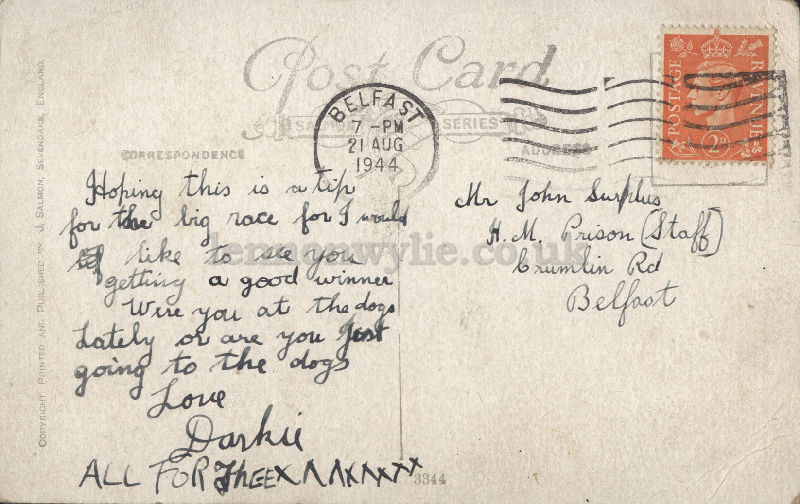 Post Card
SALMON SERIES
CORRESPONDENCE
ADDRESS
BELFAST
7 -PM
21 AUG
1944
POSTAGE
REVENUE
2D
Hoping this is a tip
for the big race for I would
like to see you
getting a good winner
Wire you at the dogs
Lately or are you Just
going to the dogs
Love
Darkie
ALL FOR THEE XXXXXXXX
Mr John Surplus
H.M. Prison (Staff)
Crumlin Rd
Belfast
COPYRIGHT PRINTED AND PUBLISHED BY J. SALMON, SEVENOAKS, ENGLAND.
3344
lennonwylie.co.uk